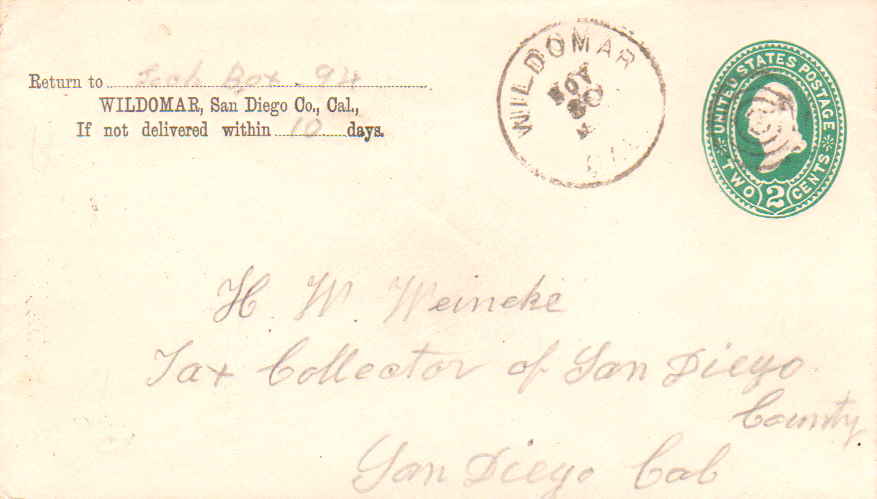 Return to Lock Box 94
WILDOMAR, San Diego Co., Cal.,
If not delivered within 10 days.
WILDOMAR
NOV
30
CAL
UNITED STATES POSTAGE
TWO 2 CENTS
H. W. Weineke
Tax Collector of San Diego
County
San Diego Cal